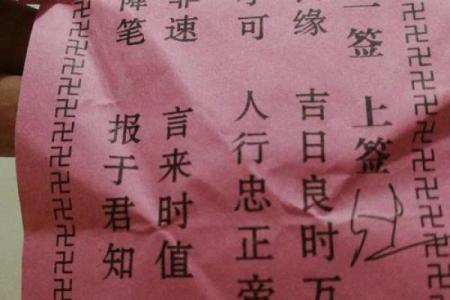 一签 上签
缘 吉日良时万
可 人行忠正帝
速 言来时值
降笔 报于君知